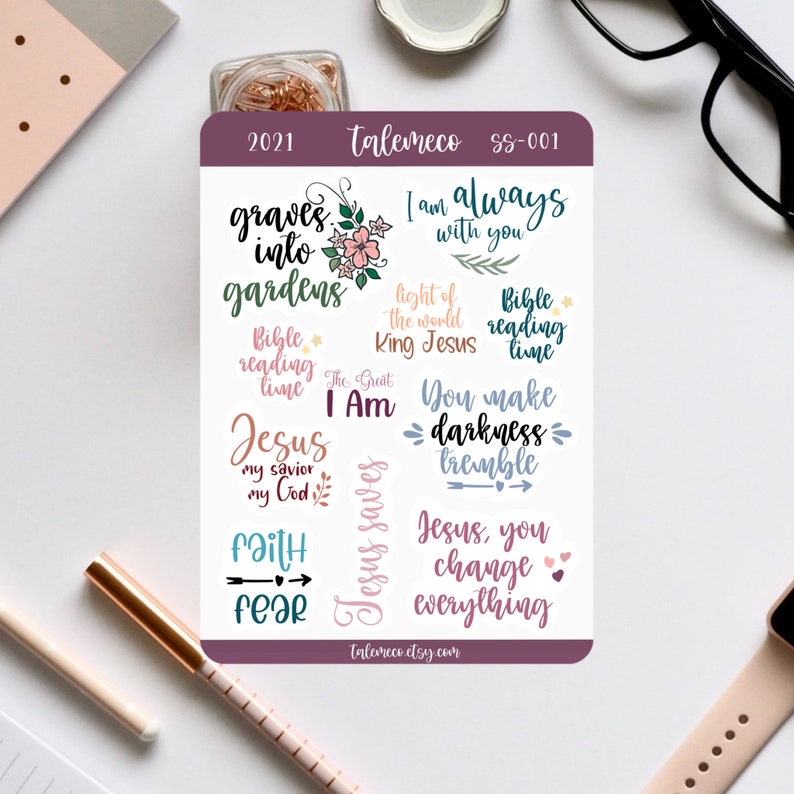 2021 talemeco SS-001
graves
into
gardens
I am always
with you
light of
the world
King Jesus
Bible
reading
time
Bible
reading
time
The Great
I Am
You make
darkness
tremble
Jesus
my savior
my God
Jesus saves
faith
fear
Jesus, you
change
everything
talemeco.etsy.com